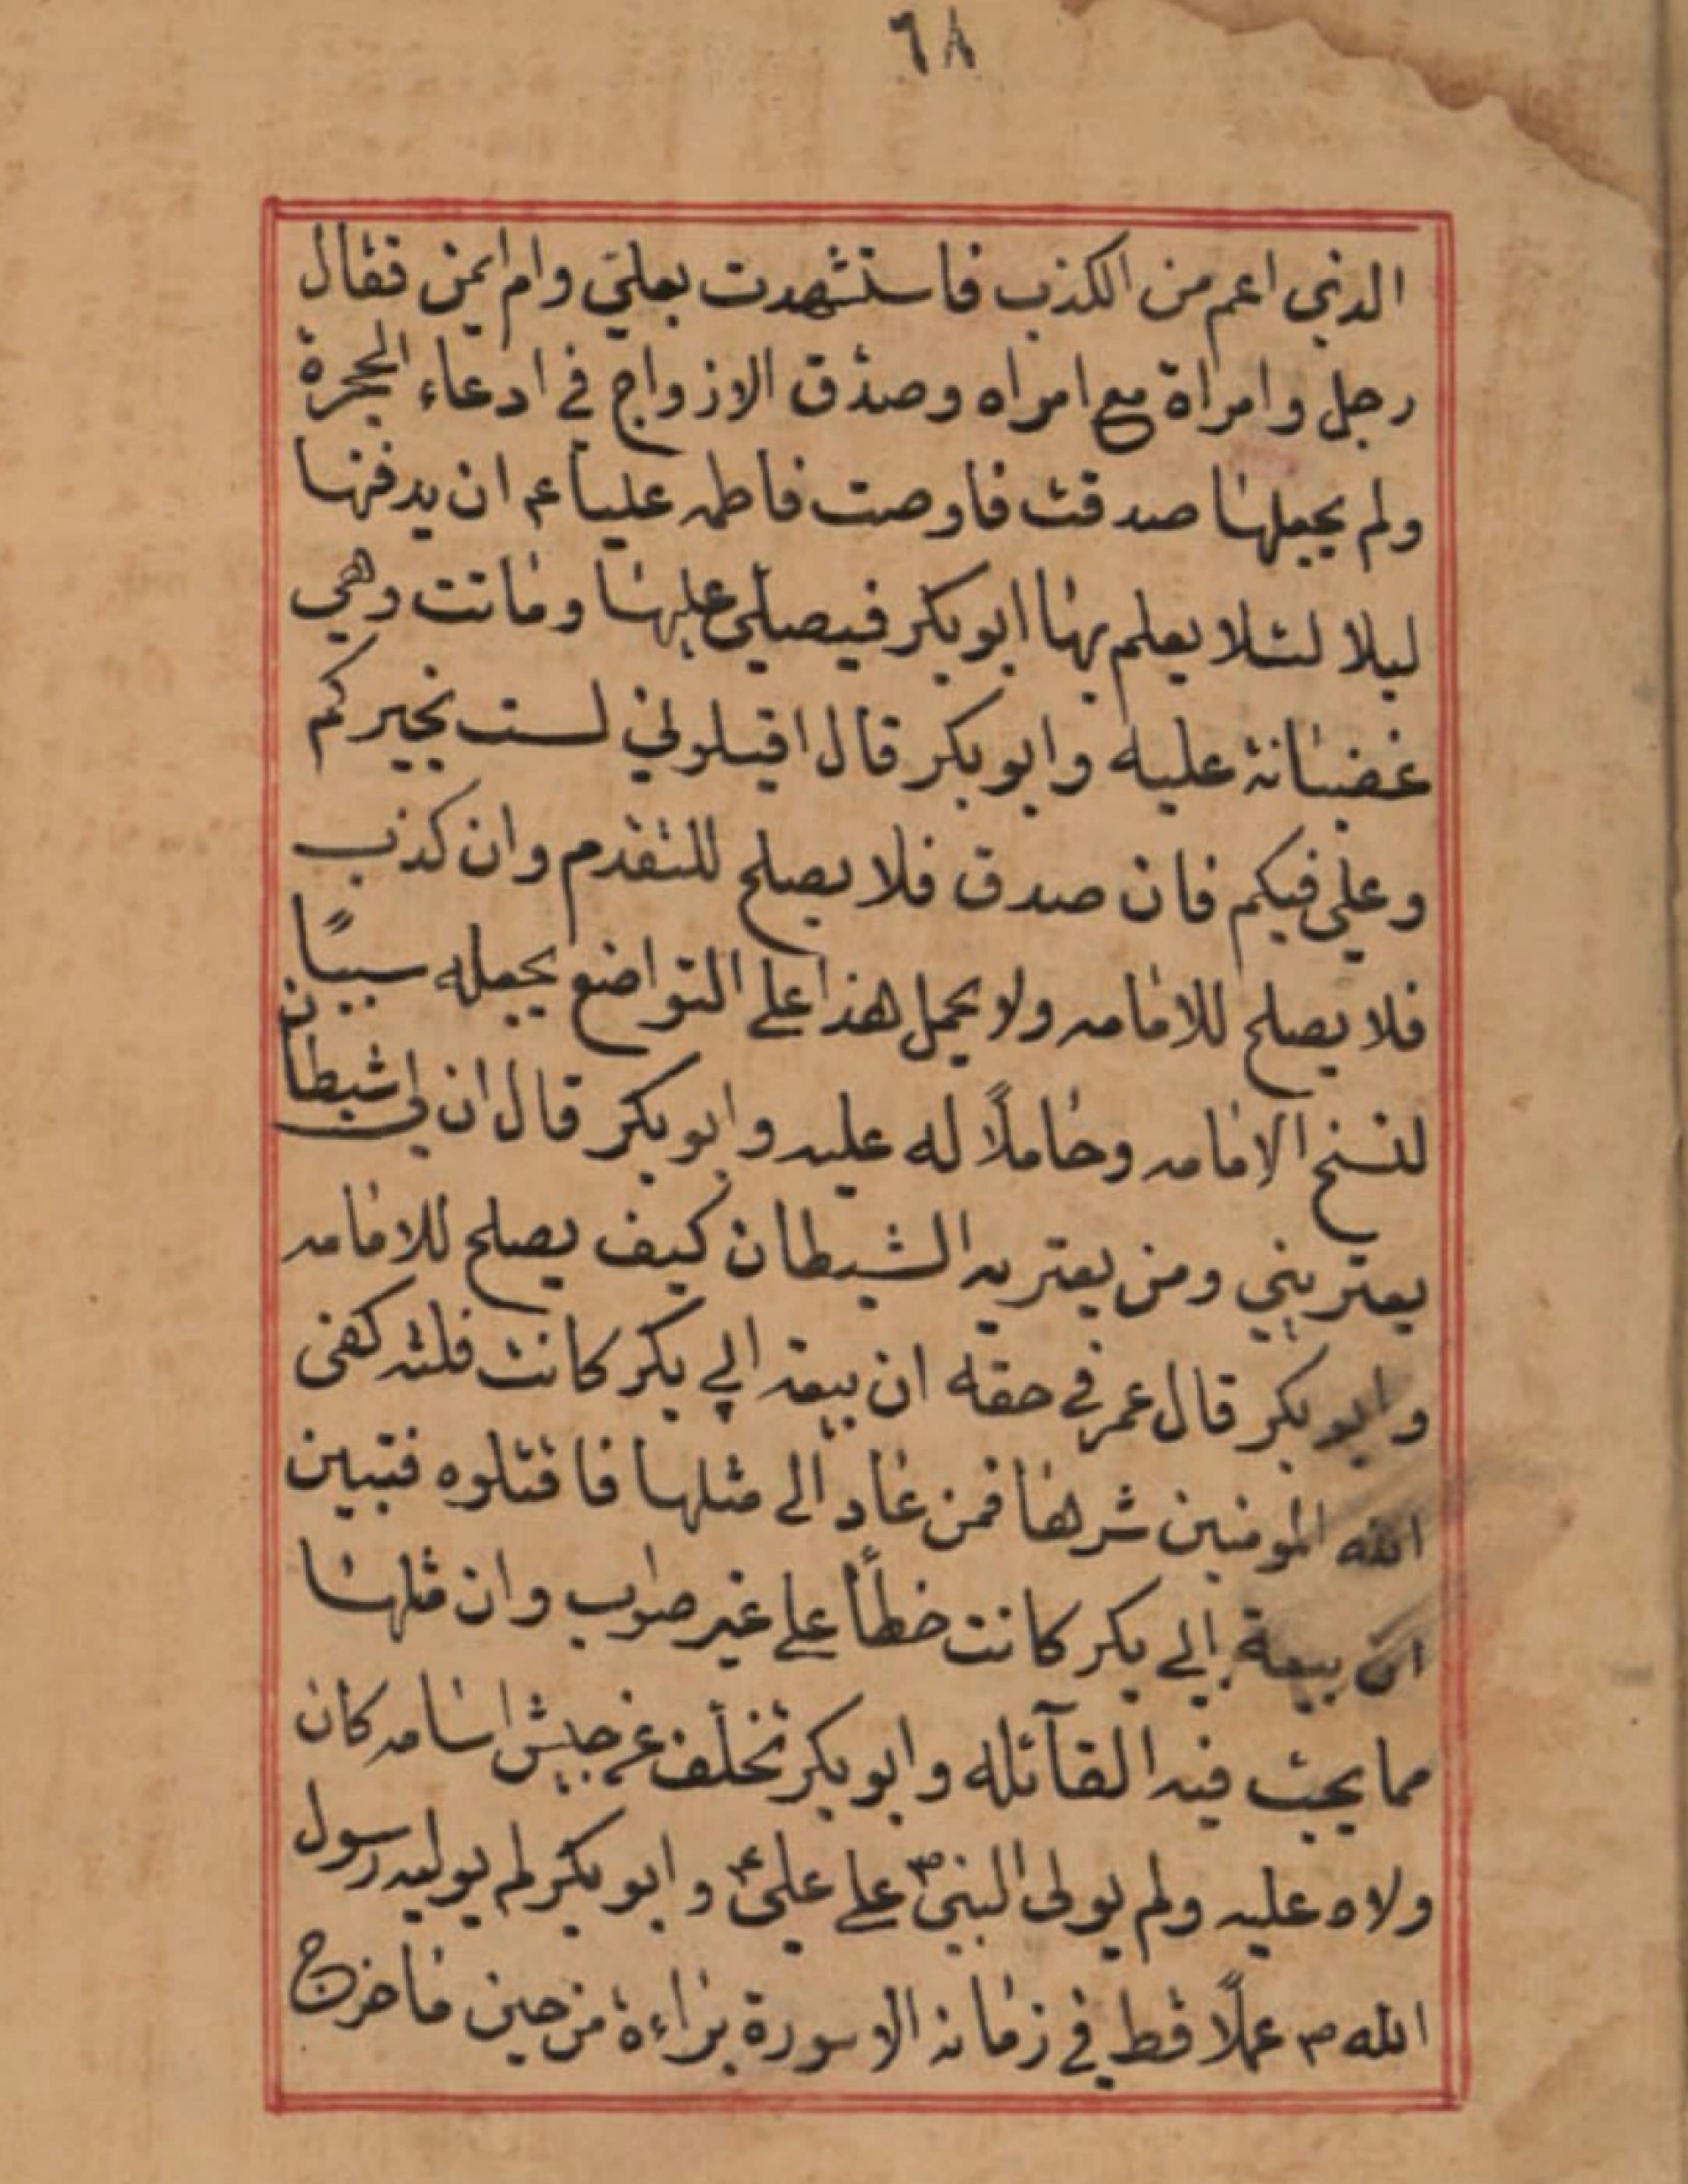 ٦٨
الذي اعم من الكذب فاستشهدت بعلي وام ايمن فقال
رجل وامراة مع امراه وصدق الازواج في ادعاء الحجرة
ولم يجعلها صدقت فاوصت فاطمه عليا عم ان يدفنها
ليلا لئلا يعلم بها ابو بكر فيصلي عليها وماتت وهي
غضبانة عليه وابو بكر قال اقيلوني لست بخيركم
وعلي فيكم فان صدق فلا يصلح للتقدم وان كذب
فلا يصلح للامامه ولا يحمل هذا على التواضع يجعله سببًا
لنسخ الامامه وحاملًا له عليه وابو بكر قال ان لي شيطان
يعتريني ومن يعتريه الشيطان كيف يصلح للامامه
وابو بكر قال عمر في حقه ان بيعة ابي بكر كانت فلته كفى
الله المومنين شرها فمن عاد الى مثلها فاقتلوه فتبين
ان بيعة ابي بكر كانت خطأ على غير صواب وان مثلها
مما يجب فيه القآتله وابو بكر تخلف عن جيش اسامه كان
ولاه عليه ولم يولى النبي ص على علي ع وابو بكر لم يوليه رسول
الله ص عملًا قط في زمانه الا سورة براءة من حين ما خرج